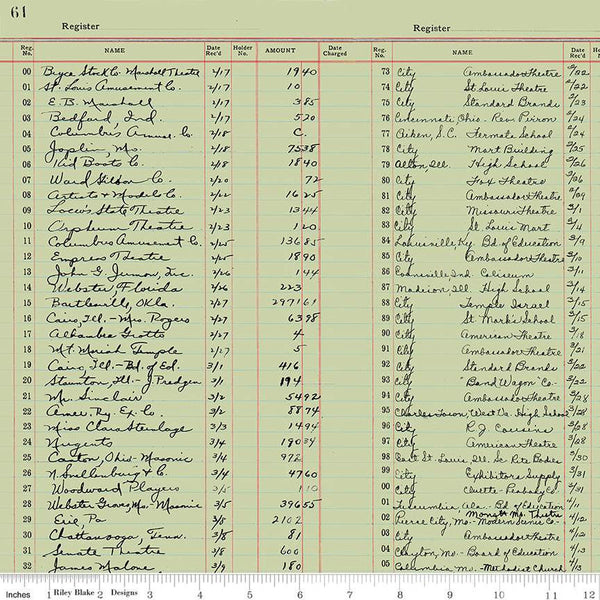 61
Register
Register
Reg. No. NAME Date Rec'd Holder No. AMOUNT Date Charged
00 Bryce Stock Co. Marshall Theatre 2/17 1940
01 St. Louis Amusement Co. 2/17 10
02 E.B. Marshall 2/17 385
03 Bedford, Ind. 2/17 520
04 Columbus Amuse. Co 2/18 C.
05 Joplin, Mo. 2/18 7538
06 Kid Boots Co. 2/18 1840
07 Ward Co. 2/20 72
08 Artists & Models Co. 2/22 1625
09 Loew's State Theatre 2/23 1344
10 Orpheum Theatre 2/23 120
11 Columbus Amusement Co. 2/25 13685
12 Empress Theatre 2/25 1890
13 John G. Inc. 2/26 144
14 Webster, Florida 2/26 223
15 Bartlesville, Okla. 2/27 297161
16 Cairo, Ill. - Mrs. Rogers 2/27 6398
17 Alhambra Grotto 2/27 4
18 Mt. Moriah Temple 2/27 5
19 Cairo, Ill. - Bd. of Ed. 3/1 416
20 Staunton, Ill. - J 3/1 194
21 Mr. Sinclair 3/2 5492
22 Amer. Ry. Ex. Co. 3/2 8874
23 Miss Clara 3/3 1494
24 Nugents 3/4
25 Canton, Ohio - Masonic 3/4 972
26 N. Snellenburg & Co. 3/4 4760
27 Woodward Players 3/5 110
28 Webster Groves, Mo. - Masonic 3/5 39655
29 Erie, Pa 3/8 2102
30 Chattanooga, Tenn. 3/8 81
31 Senate Theatre 3/8 600
32 James Malone 3/9 180
Reg. No. NAME Date Rec'd
73 City Ambassador Theatre 2/22
74 City St Louis Theatre 2/22
75 City Standard Brands 2/23
76 Cincinnati, Ohio - Rev. Pirron 2/24
77 Aiken, S.C. Fermata School 2/24
78 City Mart Building 2/25
79 Alton, Ill. High School 2/26
80 City Fox Theatre 2/26
81 City Ambassador Theatre 2/29
82 City Missouri Theatre 3/1
83 City St Louis Mart 3/4
84 Louisville, Ky. Bd. of Education 3/9
85 City Ambassador Theatre 3/10
86 Evansville Ind. Coliseum 3/11
87 Madison, Ill. High School 3/14
88 City Temple Israel 3/15
89 City St Mark's School 3/15
90 City American Theatre 3/18
91 City Ambassador Theatre 3/21
92 City Standard Brands 3/22
93 City "Band Wagon" Co. 3/22
94 City Ambassador Theatre 3/28
95 Charles Town, West Va. High School 3/28
96 City R.J. Cousins 3/28
97 City American Theatre 3/28
98 East St. Louis, Ill. Sc. Rite Bodies 3/30
99 City Exhibitors Supply 3/31
00 City Cluett-Peabody Co. 3/31
01 Tuscumbia, Ala. - Bd. of Education 4/11
02 Pierce City, Mo. - Modernistic Co. 4/12
03 City Ambassador Theatre 4/12
04 Clayton, Mo. - Board of Education 4/13
05 Columbia Mo. - Methodist Church 4/13
Inches 1 Riley Blake 2 Designs 3 4 5 6 7 8 9 10 11 12